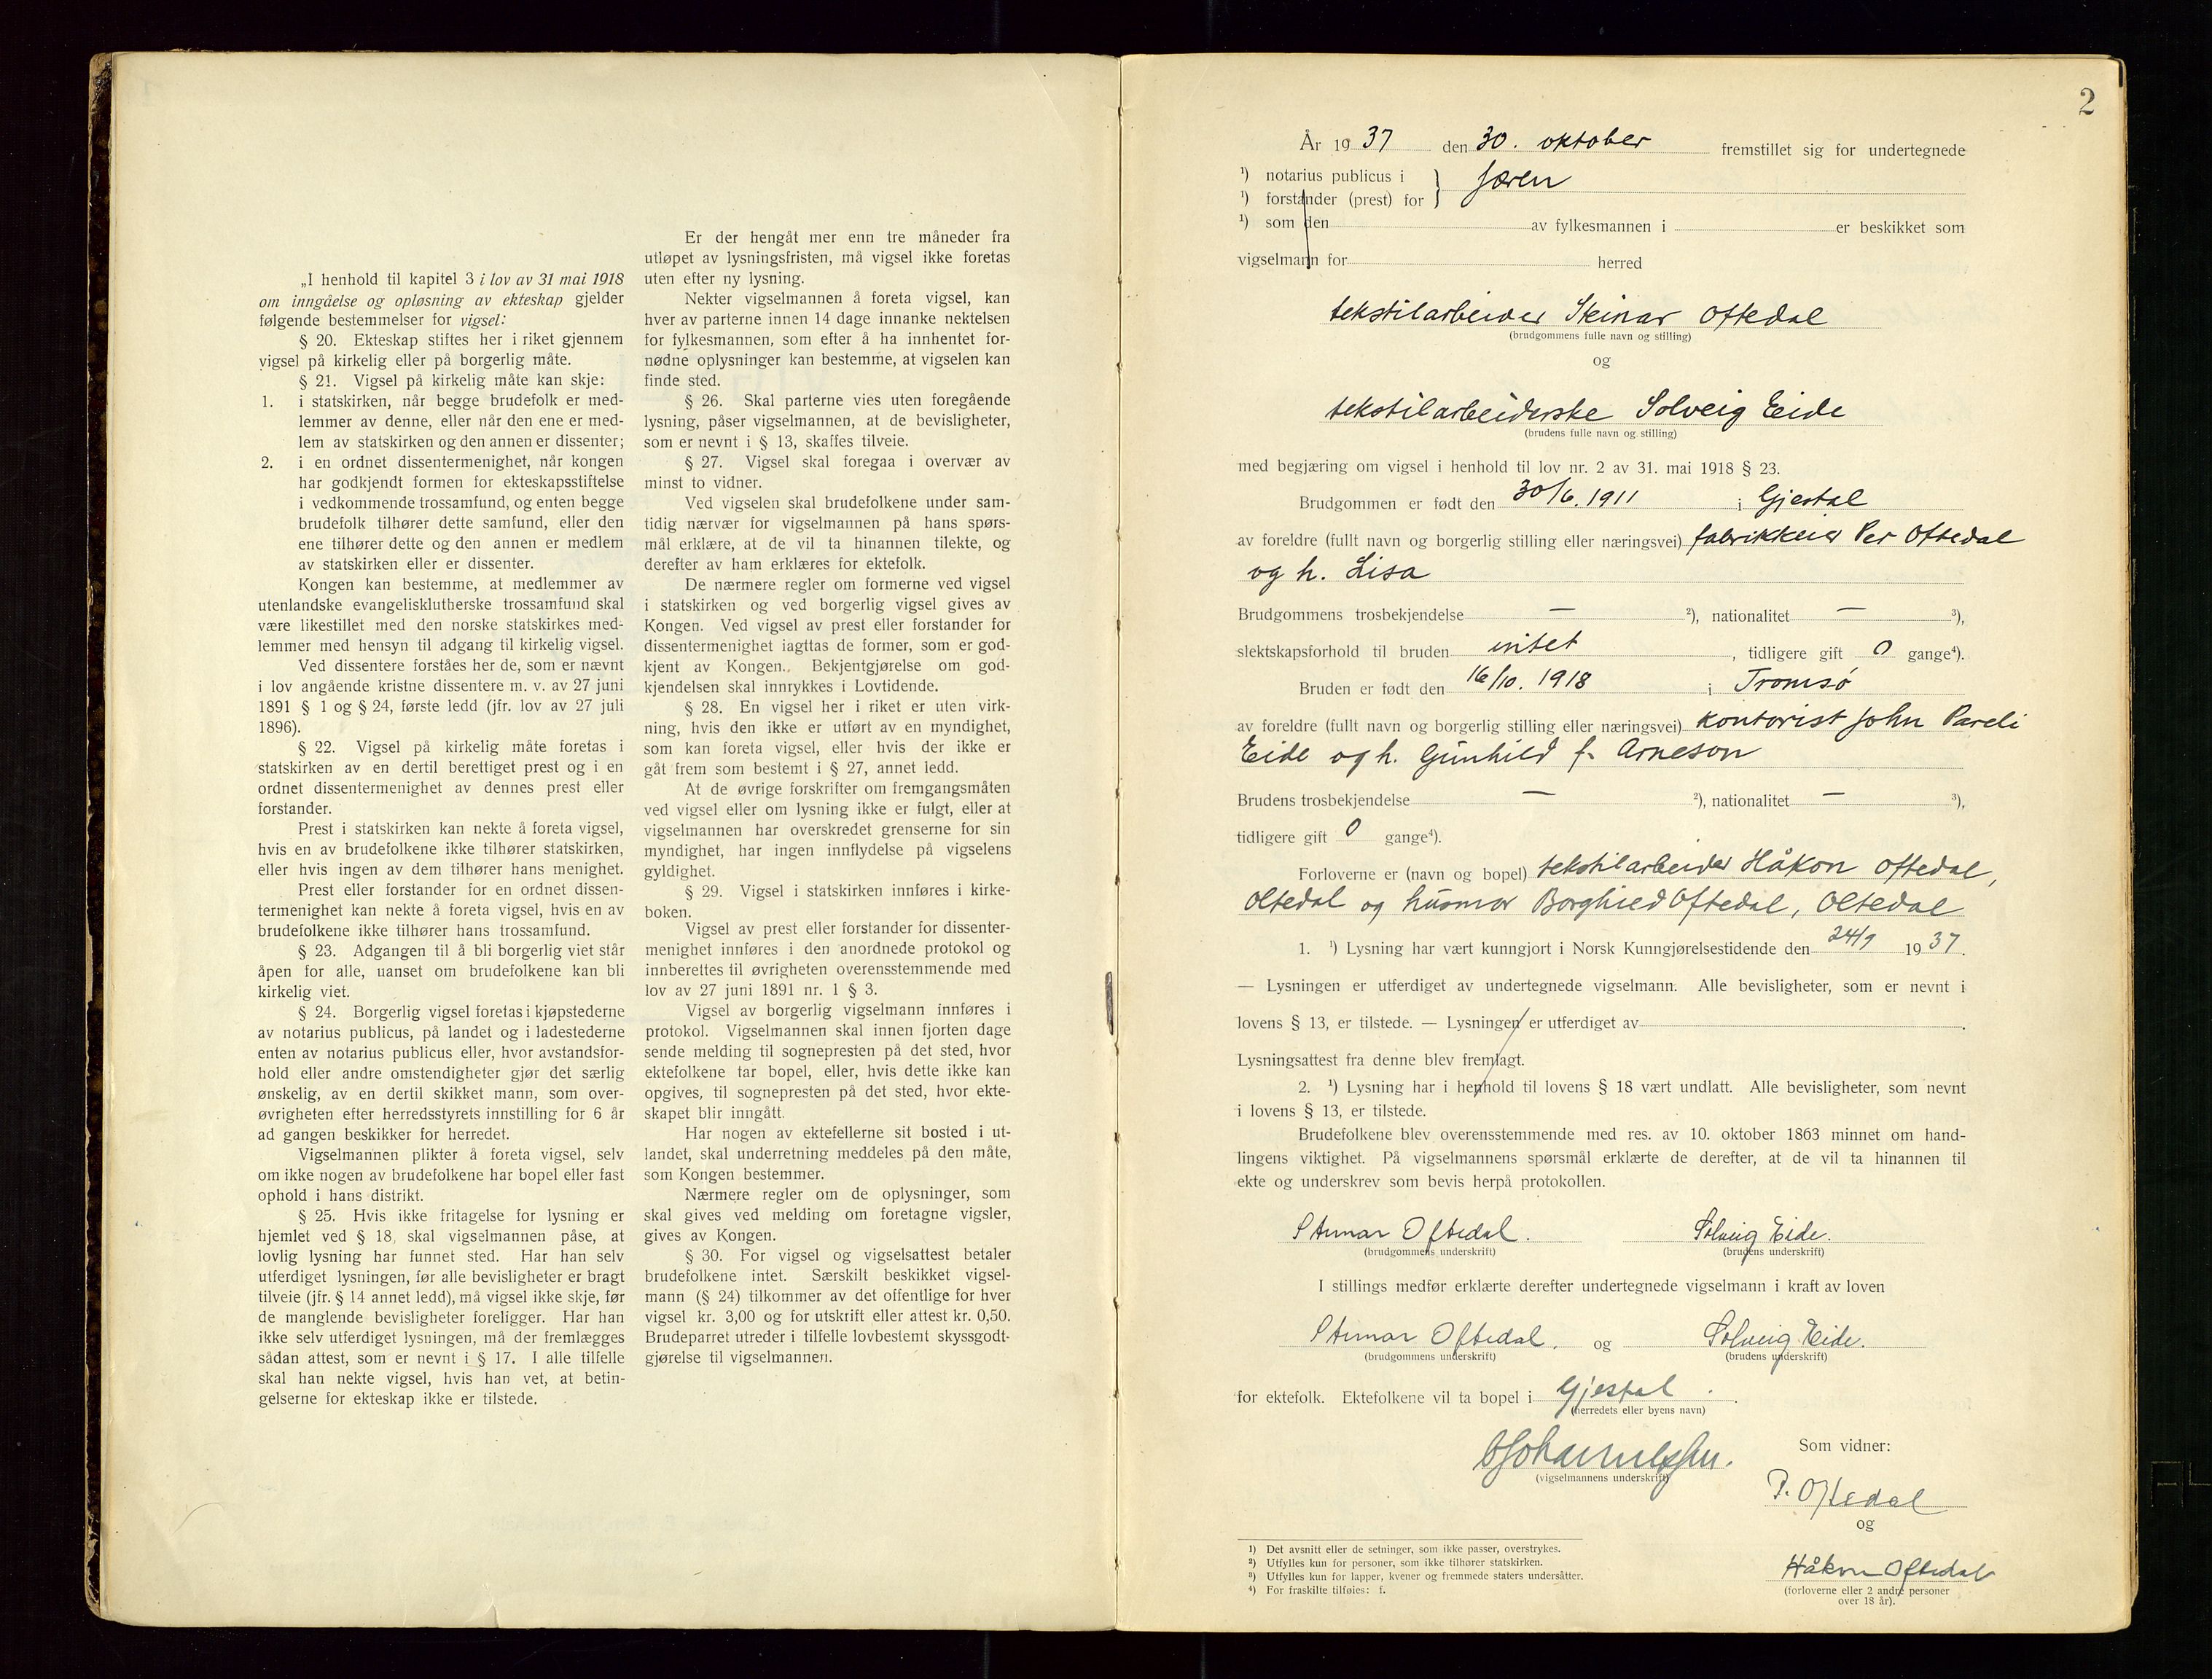 „I henhold til kapitel 3 i lov av 31 mai 1918
om inngåelse og opløsning av ekteskap gjelder
følgende bestemmelser for vigsel:
§ 20. Ekteskap stiftes her i riket gjennem
vigsel på kirkelig eller på borgerlig måte.
§ 21. Vigsel på kirkelig måte kan skje:
1. i statskirken, når begge brudefolk er med-
lemmer av denne, eller når den ene er med-
lem av statskirken og den annen er dissenter;
2. i en ordnet dissentermenighet, når kongen
har godkjendt formen for ekteskapsstiftelse
i vedkommende trossamfund, og enten begge
brudefolk tilhører dette samfund, eller den
ene tilhører dette og den annen er medlem
av statskirken eller er dissenter.
Kongen kan bestemme, at medlemmer av
utenlandske evangelisklutherske trossamfund skal
være likestillet med den norske statskirkes med-
lemmer med hensyn til adgang til kirkelig vigsel.
Ved dissentere forståes her de, som er nævnt
i lov angående kristne dissentere m. v. av 27 juni
1891 § 1 og § 24, første ledd (jfr. lov av 27 juli
1896).
§ 22. Vigsel på kirkelig måte foretas i
statskirken av en dertil berettiget prest og i en
ordnet dissentermenighet av dennes prest eller
forstander.
Prest i statskirken kan nekte å foreta vigsel,
hvis en av brudefolkene ikke tilhører statskirken,
eller hvis ingen av dem tilhører hans menighet.
Prest eller forstander for en ordnet dissen-
termenighet kan nekte å foreta vigsel, hvis en av
brudefolkene ikke tilhører hans trossamfund.
§ 23. Adgangen til å bli borgerlig viet står
åpen for alle, uanset om brudefolkene kan bli
kirkelig viet.
§ 24. Borgerlig vigsel foretas i kjøpstederne
av notarius publicus, på landet og i ladestederne
enten av notarius publicus eller, hvor avstandsfor-
hold eller andre omstendigheter gjør det særlig
ønskelig, av en dertil skikket mann, som over-
øvrigheten efter herredsstyrets innstilling for 6 år
ad gangen beskikker for herredet.
Vigselmannen plikter å foreta vigsel, selv
om ikke nogen av brudefolkene har bopel eller fast
ophold i hans distrikt.
§ 25. Hvis ikke fritagelse for lysning er
hjemlet ved § 18, skal vigselmannen påse, at
lovlig lysning har funnet sted. Har han selv
utferdiget lysningen, før alle bevisligheter er bragt
tilveie (jfr. § 14 annet ledd), må vigsel ikke skje, før
de manglende bevisligheter foreligger. Har han
ikke selv utferdiget lysningen, må der fremlægges
sådan attest, som er nevnt i § 17. I alle tilfelle
skal han nekte vigsel, hvis han vet, at betin-
gelserne for ekteskap ikke er tilstede.
Er der hengåt mer enn tre måneder fra
utløpet av lysningsfristen, må vigsel ikke foretas
uten efter ny lysning.
Nekter vigselmannen å foreta vigsel, kan
hver av parterne innen 14 dage innanke nektelsen
for fylkesmannen, som efter å ha innhentet for-
nødne oplysninger kan bestemme, at vigselen kan
finde sted.
§ 26. Skal parterne vies uten foregående
lysning, påser vigselmannen, at de bevisligheter,
som er nevnt i § 13, skaffes tilveie.
§ 27. Vigsel skal foregaa i overvær av
minst to vidner.
Ved vigselen skal brudefolkene under sam-
tidig nærvær for vigselmannen på hans spørs-
mål erklære, at de vil ta hinannen tilekte, og
derefter av ham erklæres for ektefolk.
De nærmere regler om formerne ved vigsel
i statskirken og ved borgerlig vigsel gives av
Kongen. Ved vigsel av prest eller forstander for
dissentermenighet iagttas de former, som er god-
kjent av Kongen. Bekjentgjørelse om god-
kjendelsen skal innrykkes i Lovtidende.
§ 28. En vigsel her i riket er uten virk-
ning, hvis den ikke er utført av en myndighet,
som kan foreta vigsel, eller hvis der ikke er
gåt frem som bestemt i § 27, annet ledd.
At de øvrige forskrifter om fremgangsmåten
ved vigsel eller om lysning ikke er fulgt, eller at
vigselmannen har overskredet grenserne for sin
myndighet, har ingen innflydelse på vigselens
gyldighet.
§ 29. Vigsel i statskirken innføres i kirke-
boken.
Vigsel av prest eller forstander for dissenter-
menighet innføres i den anordnede protokol og
innberettes til øvrigheten overensstemmende med
lov av 27 juni 1891 nr. 1 § 3.
Vigsel av borgerlig vigselmann innføres i
protokol. Vigselmannen skal innen fjorten dage
sende melding til sognepresten på det sted, hvor
ektefolkene tar bopel, eller, hvis dette ikke kan
opgives, til sognepresten på det sted, hvor ekte-
skapet blir inngått.
Har nogen av ektefellerne sit bosted i ut-
landet, skal underretning meddeles på den måte,
som Kongen bestemmer.
Nærmere regler om de oplysninger, som
skal gives ved melding om foretagne vigsler,
gives av Kongen.
§ 30. For vigsel og vigselsattest betaler
brudefolkene intet. Særskilt beskikket vigsel-
mann (§ 24) tilkommer av det offentlige for hver
vigsel kr. 3,00 og for utskrift eller attest kr. 0,50.
Brudeparret utreder i tilfelle lovbestemt skyssgodt-
gjørelse til vigselmannen.
2
År 1937 den 30. oktober fremstillet sig for undertegnede
¹) notarius publicus i } Jæren
¹) forstander (prest) for
¹) som den av fylkesmannen i er beskikket som
vigselmann for herred
tekstilarbeider Steinar Oftedal
(brudgommens fulle navn og stilling)
og
tekstilarbeiderske Solveig Eide
(brudens fulle navn og stilling)
med begjæring om vigsel i henhold til lov nr. 2 av 31. mai 1918 § 23.
Brudgommen er født den 30/6. 1911 i Gjestal
av foreldre (fullt navn og borgerlig stilling eller næringsvei) fabrikkeier Per Oftedal
og h. Lisa
Brudgommens trosbekjendelse — ²), nationalitet — ³),
slektskapsforhold til bruden intet, tidligere gift 0 gange⁴).
Bruden er født den 16/10. 1918 i Tromsø
av foreldre (fullt navn og borgerlig stilling eller næringsvei) kontorist John Pareli
Eide og h. Gunhild f. Arneson
Brudens trosbekjendelse — ²), nationalitet — ³),
tidligere gift 0 gange⁴).
Forloverne er (navn og bopel) tekstilarbeider Håkon Oftedal,
Oltedal og husmor Borghild Oftedal, Oltedal
1. ¹) Lysning har vært kunngjort i Norsk Kunngjørelsestidende den 24/9 1937.
— Lysningen er utferdiget av undertegnede vigselmann. Alle bevisligheter, som er nevnt i
lovens § 13, er tilstede. — Lysningen er utferdiget av .
Lysningsattest fra denne blev fremlagt.
2. ¹) Lysning har i henhold til lovens § 18 vært undlatt. Alle bevisligheter, som nevnt
i lovens § 13, er tilstede.
Brudefolkene blev overensstemmende med res. av 10. oktober 1863 minnet om hand-
lingens viktighet. På vigselmannens spørsmål erklærte de derefter, at de vil ta hinannen til
ekte og underskrev som bevis herpå protokollen.
Steinar Oftedal. Solveig Eide.
(brudgommens underskrift) (brudens underskrift)
I stillings medfør erklærte derefter undertegnede vigselmann i kraft av loven
Steinar Oftedal. og Solveig Eide.
(brudgommens underskrift) (brudens underskrift)
for ektefolk. Ektefolkene vil ta bopel i Gjestal.
(herredets eller byens navn)
Som vidner:
(vigselmannens underskrift)
P. Oftedal
og
Håkon Oftedal
(forloverne eller 2 andre personer
over 18 år).
¹) Det avsnitt eller de setninger, som ikke passer, overstrykes.
²) Utfylles kun for personer, som ikke tilhører statskirken.
³) Utfylles kun for lapper, kvener og fremmede staters undersåtter.
⁴) For fraskilte tilføies: f.